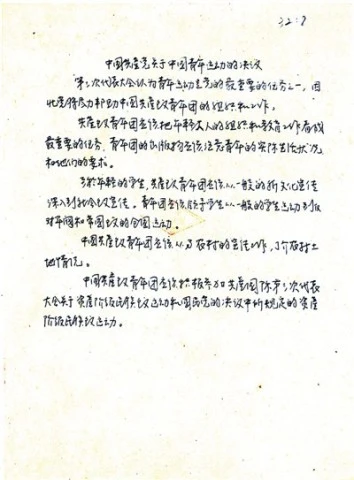 32:7
中国共产党关于中国青年运动的决议
第三次代表大会认为青年运动是党的最重要的任务之一，因
此党得尽力帮助中国共产主义青年团的组织和工作。
共产主义青年团应该把年轻工人的组织和教育工作看成
最重要的任务，青年团的出版物应该注意青年的实际生活状况
和他们的要求。
至于年轻的学生，共产主义青年团应该以一般的新文化宣传
深入到社会主义宣传。青年团应该把学生一般的学生运动引成
对军阀和帝国主义的全国运动。
中国共产主义青年团应该从事农村的宣传工作，了解农村土
地情况。
中国共产主义青年团应该积极参加共产国际第三次代表
大会关于资产阶级民族主义运动和国民党的决议中所规定的资产
阶级民族主义运动。